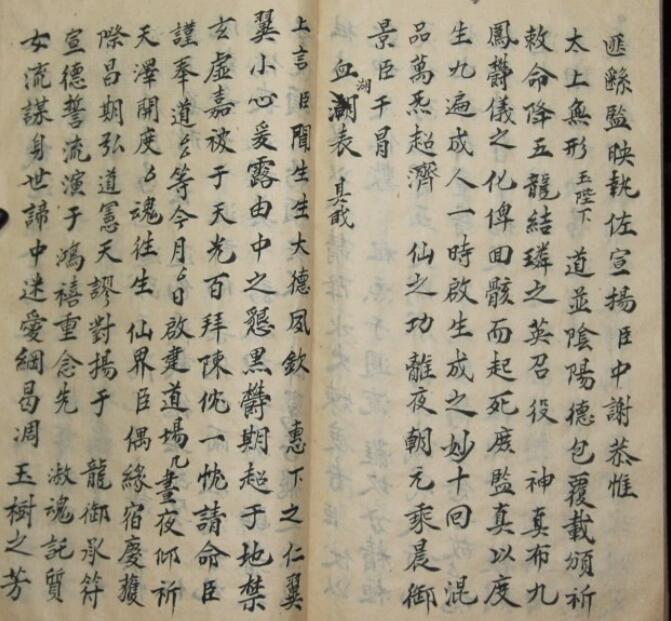 匪躰監映執佐宣揚臣中謝恭惟
太上無形玉陛下道並陰陽德包覆載頒祈
敕命降五龍結璘之英召役神真布九
鳳欎儀之化俾囬骸而起死度監真以度
生九遍成人一時啟生成之妙十囬混
品萬炁超濟仙之功離夜朝元乘晨御
景臣干冒
血湖表真戒
上言臣聞生生大德夙欽惠下之仁翼
翼小心爰露由中之懇黑欝期超于地禁
玄虛嘉被于天光百拜陳忱一忱請命臣
謹奉道厶厶等今月厶日啟建道場几晝夜仰祈
天澤開度厶魂徃生仙界臣偶緣宿慶獲
際昌期弘道憲天謬對揚于龍御承符
宣德誓流演于鴻禧重念先故魂託質
女流謀身世諦中迷愛綱曷凋玉樹之芳